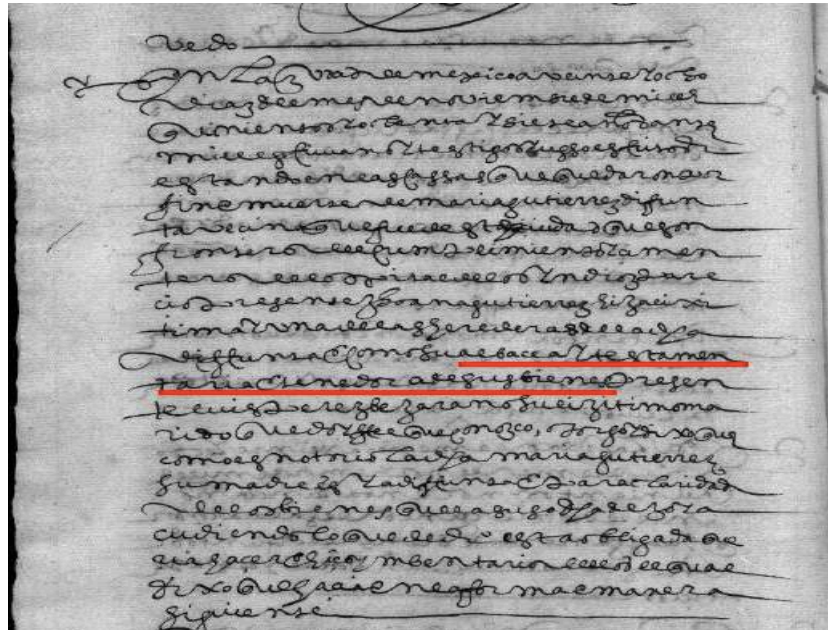 vedo
En la ciudad de mexico a veinte y ocho
dias del mes de noviembre de mill
quinientos y ochenta y siete años ante
mi el escrivano y testigos yuso escritos
estando en las cassas que quedaron por
fin e muerte de maria gutierrez difun
ta vecina que fue de esta ciudad que son
frontero del
tero del ospital de los yndios pare
cio presente juana gutierrez hija lexi
tima y una de las herederas de la dicha
diffunta e como su albacea y testamen
taria e tenedora de sus bienes presen
te luis perez bezarano su lexitimo ma
rido que doy ffee que conozco, e dixo que
como es notorio la dicha maria gutierrez
su madre es ya difunta e para claridad
de los bienes que
cudiendo lo que de derecho es obligada que
ria hacer e hizo ymbentario de ellos el qual
dixo que hacia en la forma e manera
siguiente